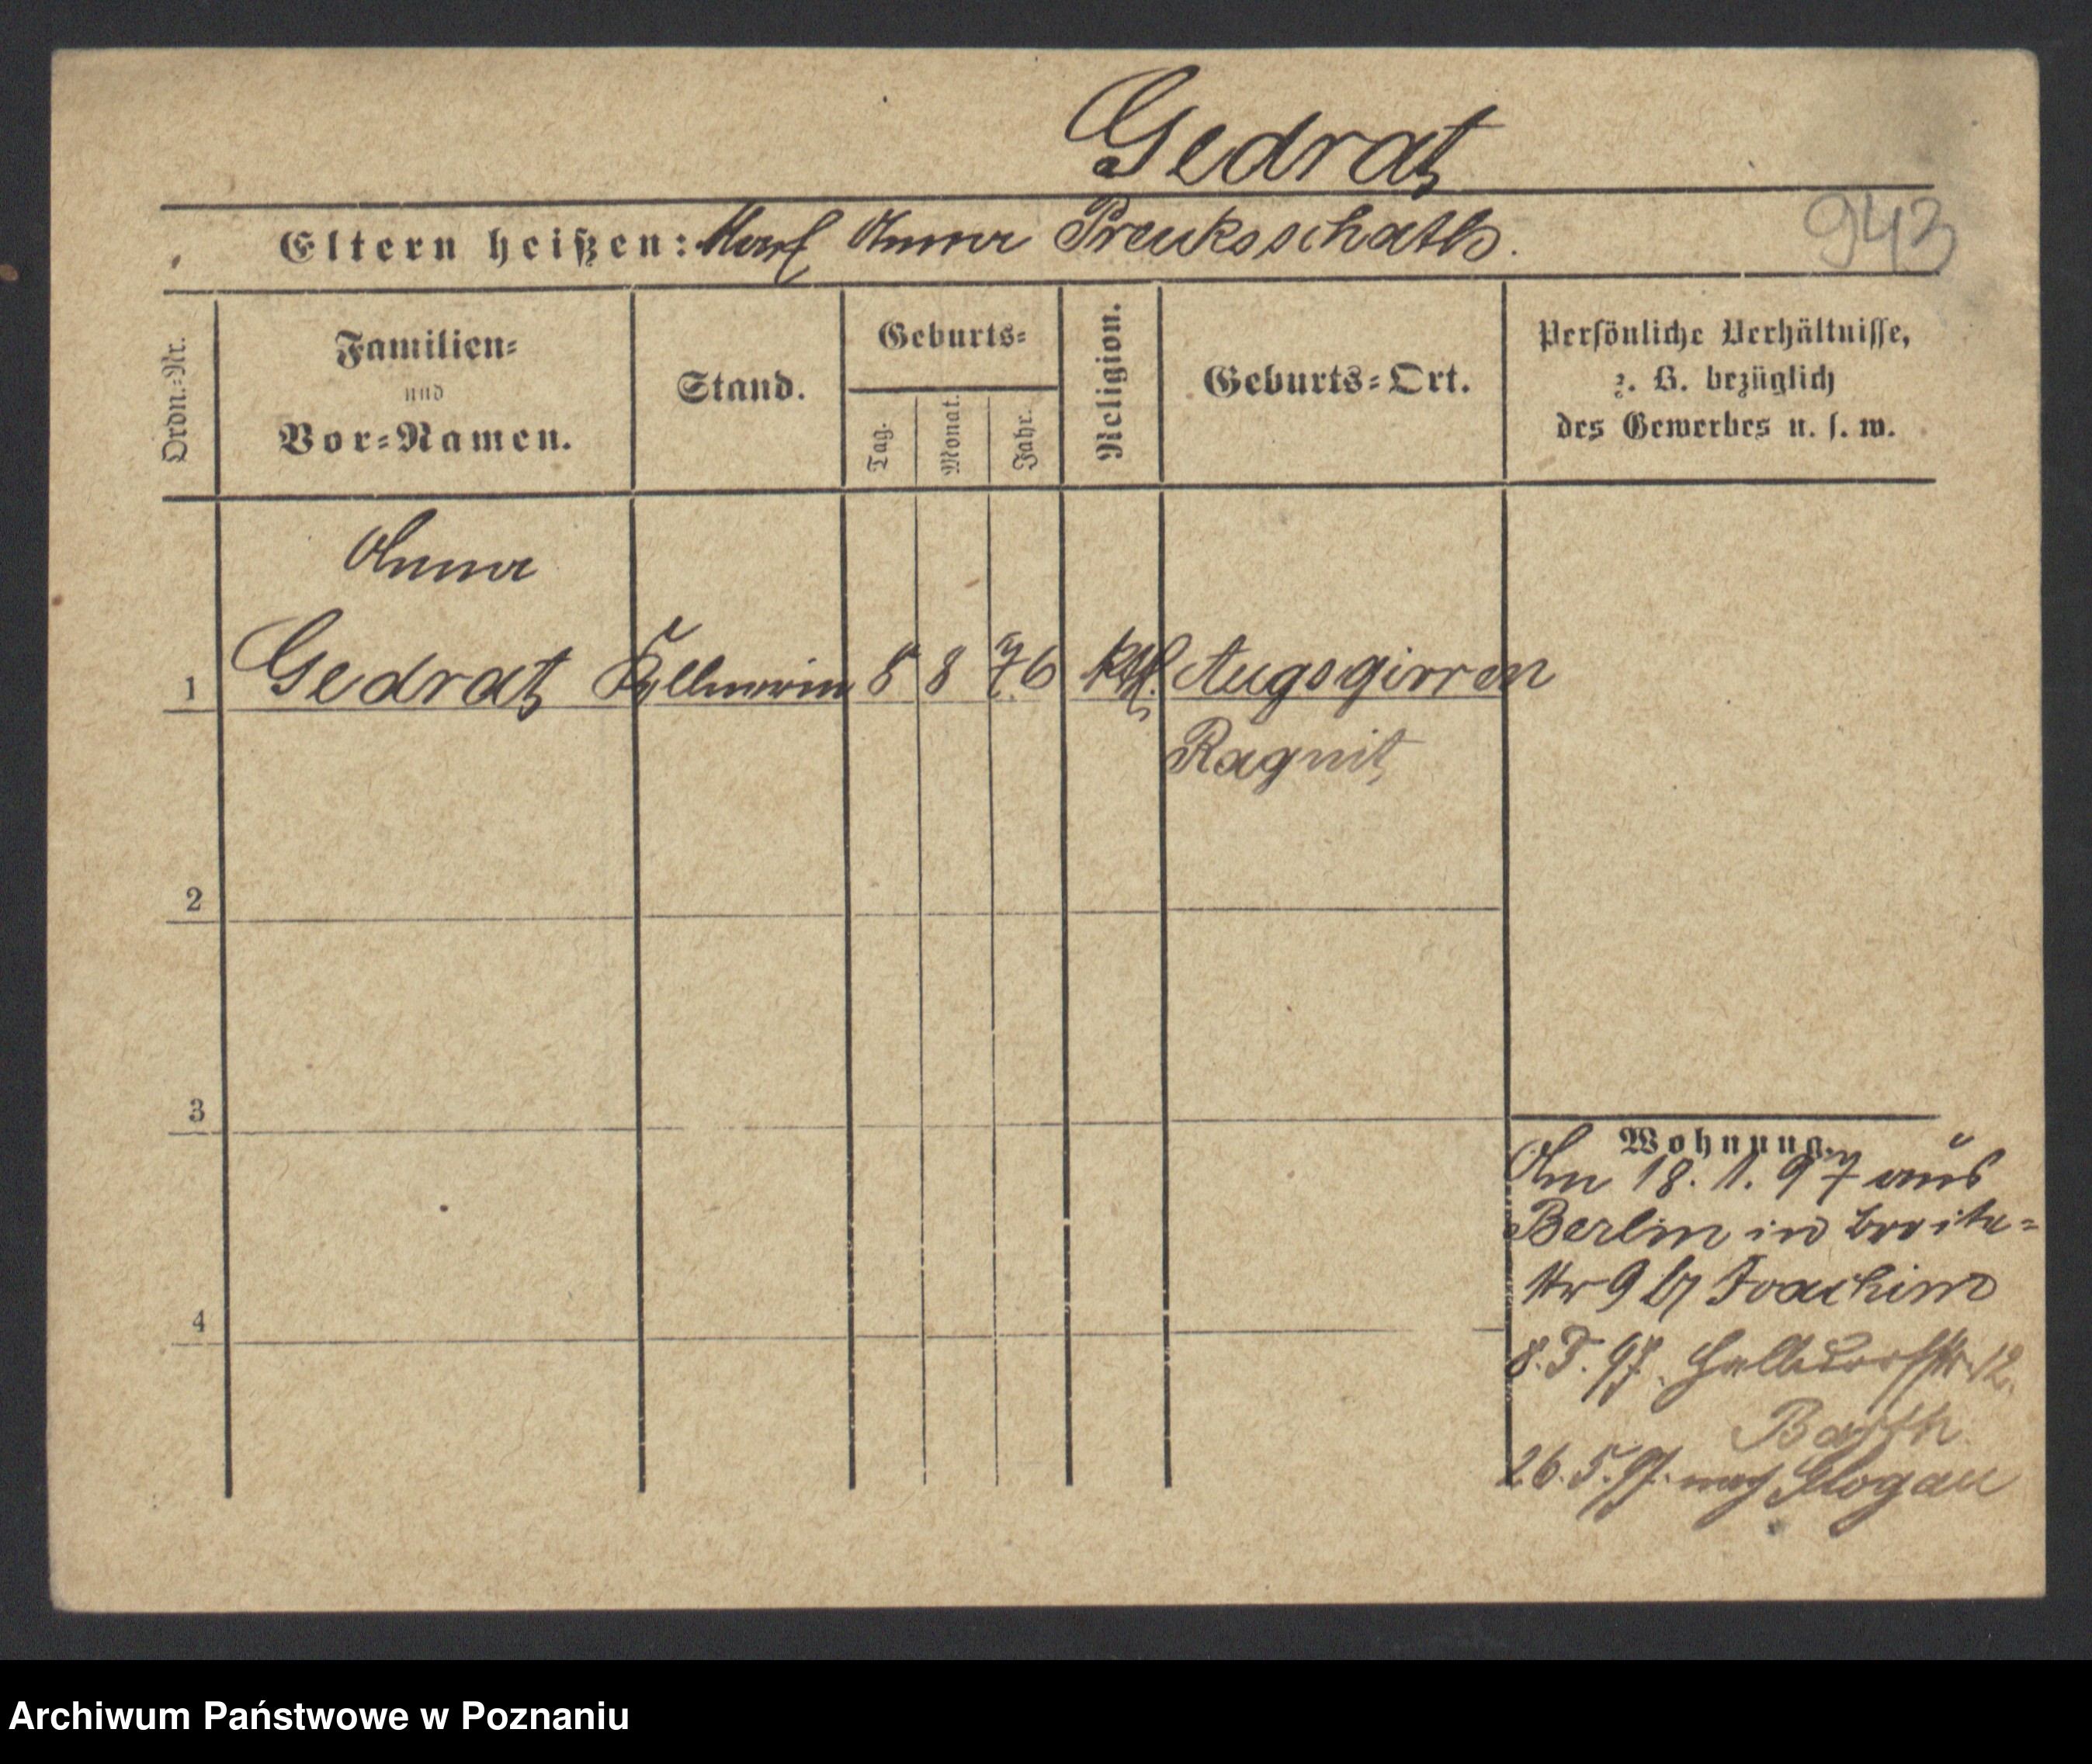 Gedrat
943
Eltern heißen: Karl Anna Preuksschatis.
Ordn.=Nr.
Familien=
und
Vor=Namen.
Stand.
Geburts=
Tag.
Monat.
Jahr.
Religion.
Geburts=Ort.
Persönliche Verhältnisse,
z. B. bezüglich
des Gewerbes u. s. w.
Anna
1 Gedrat Kellnerin 8 8 76 kth. Augsgirren
Ragnit
2
3
4
Wohnung.
Am 18. 1. 97 aus
Berlin in Breite=
str 9 by Joachim
8. 5. 97. Halbdorfstr. 12.
Barth
26. 5. 97. nach Glogau
Archiwum Państwowe w Poznaniu